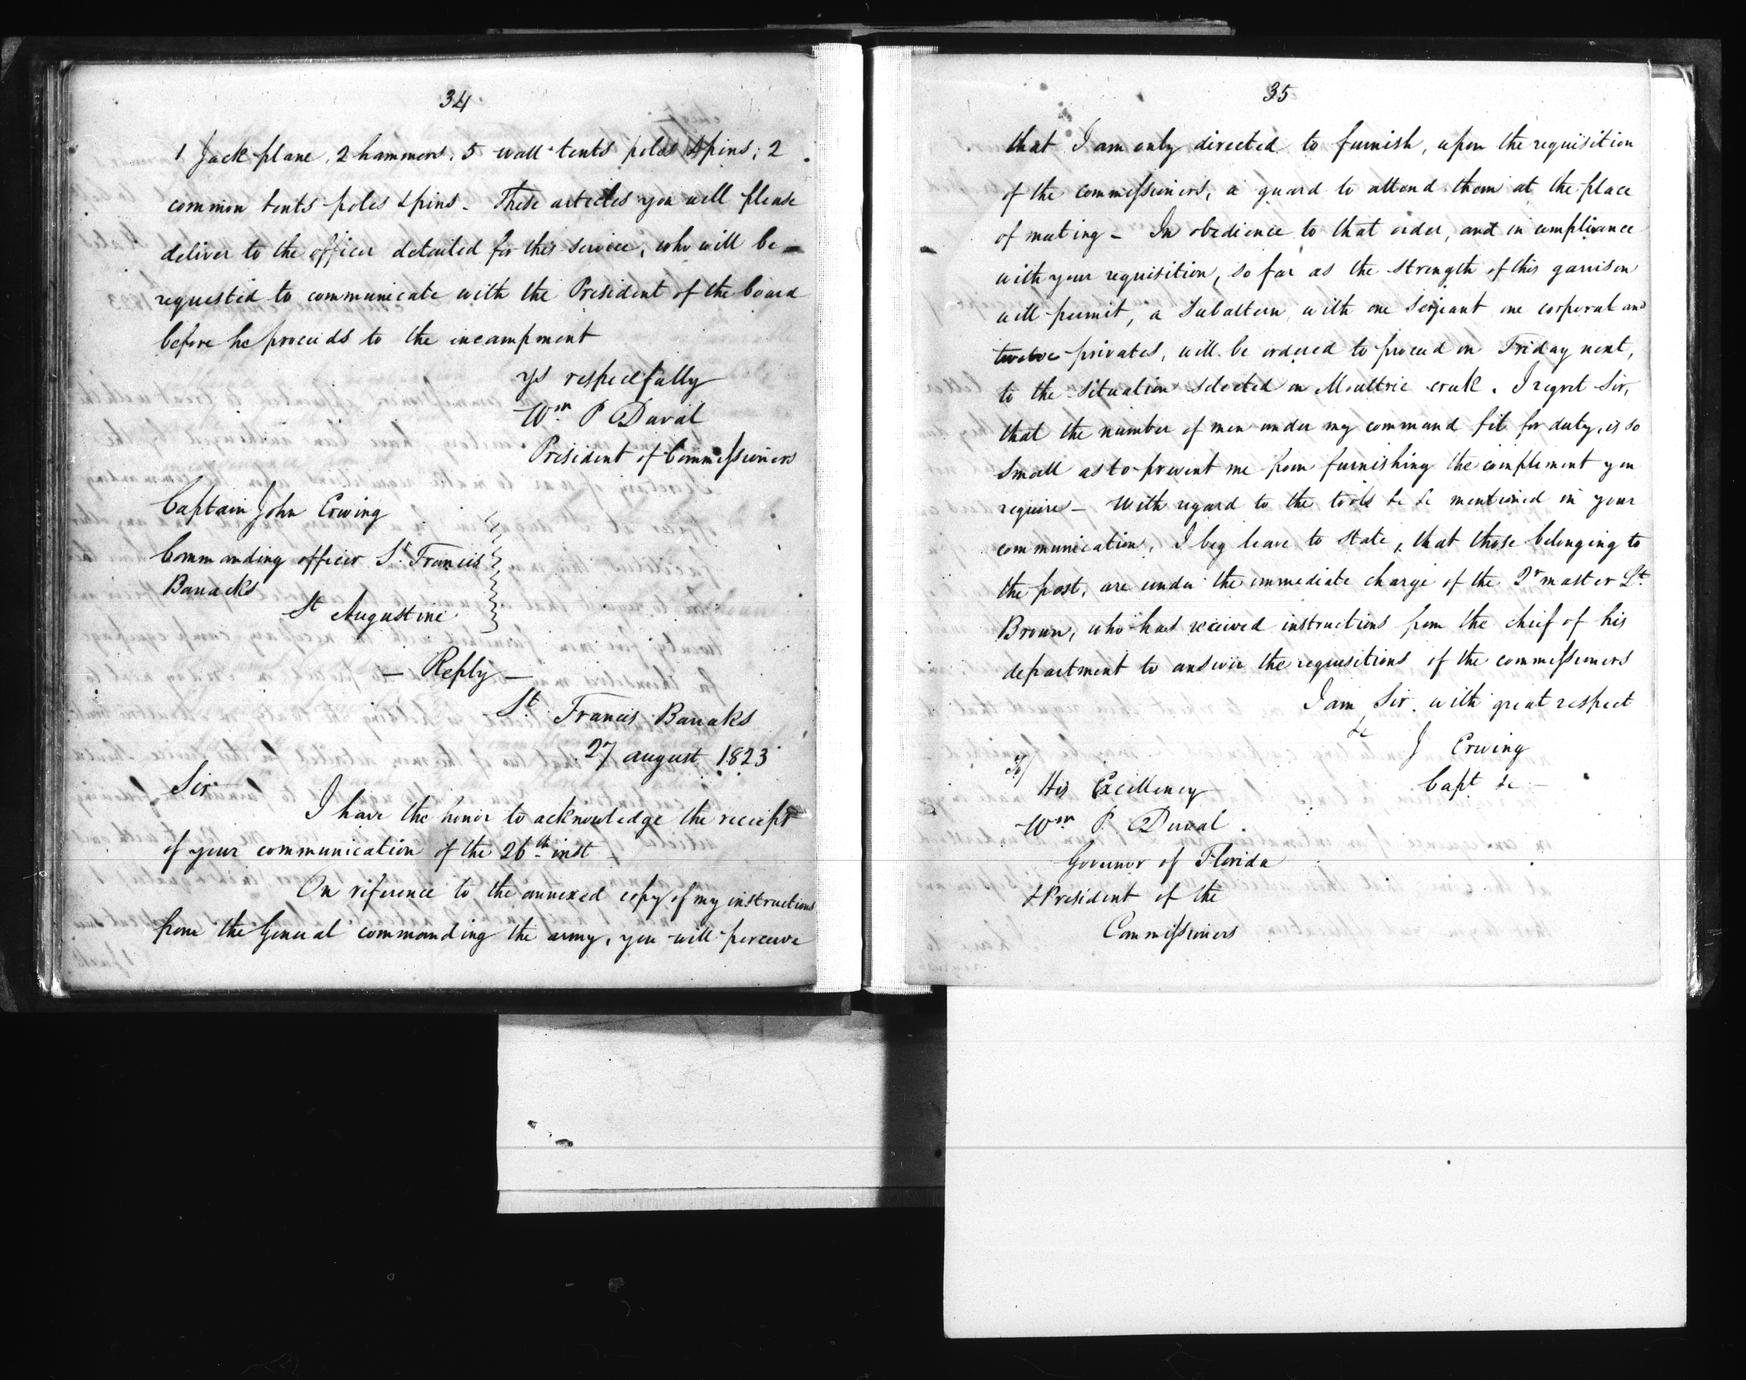 34
1 Jack plane, 2 hammers, 5 wall tents poles & pins; 2
common tents poles & pins - These articles you will please
deliver to the officer detailed for this service, who will be -
requested to communicate with the President of the board
before he proceeds to the incampment
yrs respectfully
Wm P Duval
President of Commissioners
Captain John Erving
Commanding officer St. Francis
Barracks
St Augustine
- Reply -
St. Francis Barracks
27 august 1823
Sir
I have the honor to acknowledge the receipt
of your communication of the 26th inst -
On reference to the annexed copy of my instructions
from the General commanding the army, you will perceive
35
that I am only directed to furnish, upon the requisition
of the commissioners, a guard to attend them at the place
of meeting - In obedience to that order, and in compliance
with your requisition, so far as the strength of this garrison
will permit, a Subaltern with one Serjeant one corporal and
twelve privates, will be ordered to proceed on Friday next,
to the situation selected on Moultrie creek. I regret Sir,
that the number of men under my command fit for duty, is so
small as to prevent me from furnishing the complement you
require - With regard to the tools &c &c mentioned in your
communication, I beg leave to state, that those belonging to
the post, are under the immediate charge of the Qr master Lt.
Brown, who has received instructions from the chief of his
department to answer the requisitions of the commissioners
I am Sir. with great respect
&c
J Erving
Capt &c -
To/
His Excellency
Wm P. Duval.
Governor of Florida
& President of the
Commissioners